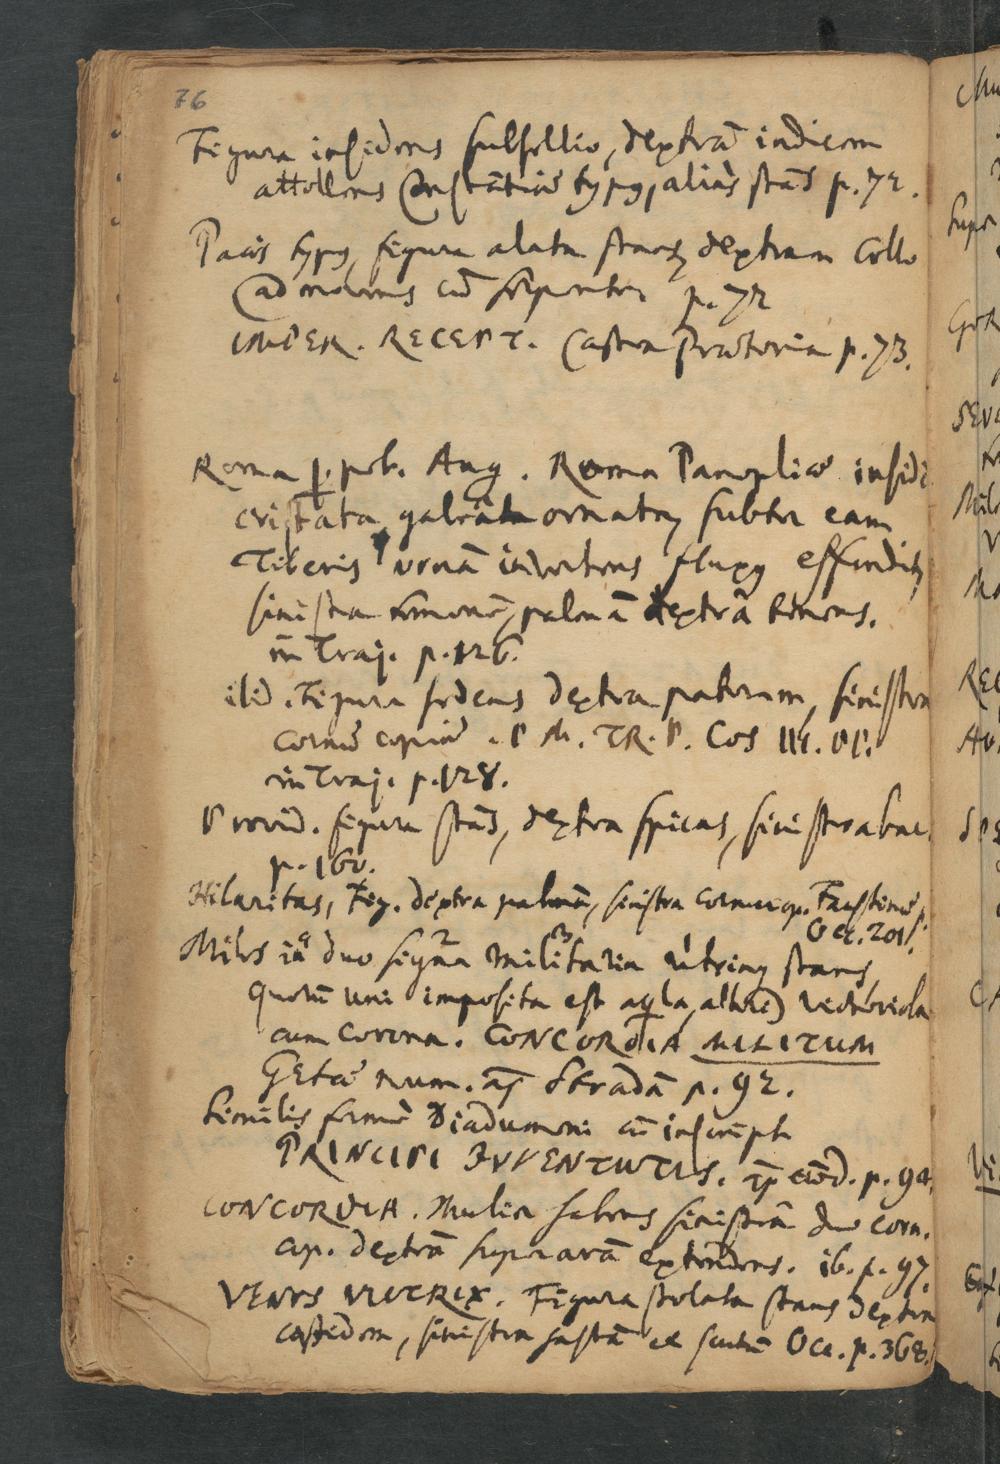 76
Figura insidens subsellio, dextrã indicem
attollens Constãtiæ typꝰ, aliàs stãs p. 72.
Pacis typꝰ, figura alata stans, dextram collo
admovens cũ serpente p. 72
IMPER. RECEPT. Castra Prætoria p. 73.
Roma p. pob. Aug. Roma Panopliæ insidẽ
cristata galeâ ornata, subter eam
Tiberis urnã invertens fluxꝰ effundit,
sinistra temonẽ, palmã dextrâ tenens.
in Traj. p. 126.
ibid. Figura sedens dextra pateram, sinistra
cornu copiæ. P M. TR. P. Cos III. PP.
in Traj. p. 128.
Provid. figura stãs, dextra spicas, sinistra
p. 160.
Hilaritas, Fig. dextra palmã, sinistra cornucop. Faustinæ p.
Occ. 201.
Miles duo signa militaria utrinq stans
quorũ uni imposita est aq̃la, alteri victoriola
cum corona. CONCORDIA MILITUM
Getæ num. ap Stradã p. 92.
Similis fermè Diadumeni cũ inscript
PRINCIPI IVVENTUTIS. ap eũd. p. 94.
CONCORDIA. Mulier habens sinistrâ duo corn.
cop. dextrã super arã extendens. ib. p. 97.
VENVS VICTRIX. Figura stolata stans dextra
cassidem, sinistra hastã et scutũ Occ. p. 368.